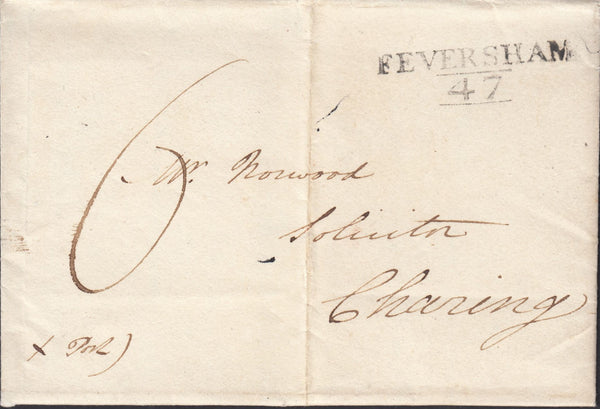 FEVERSHAM
47
6
Mr. Norwood
Solicitor
Charing
x Post)